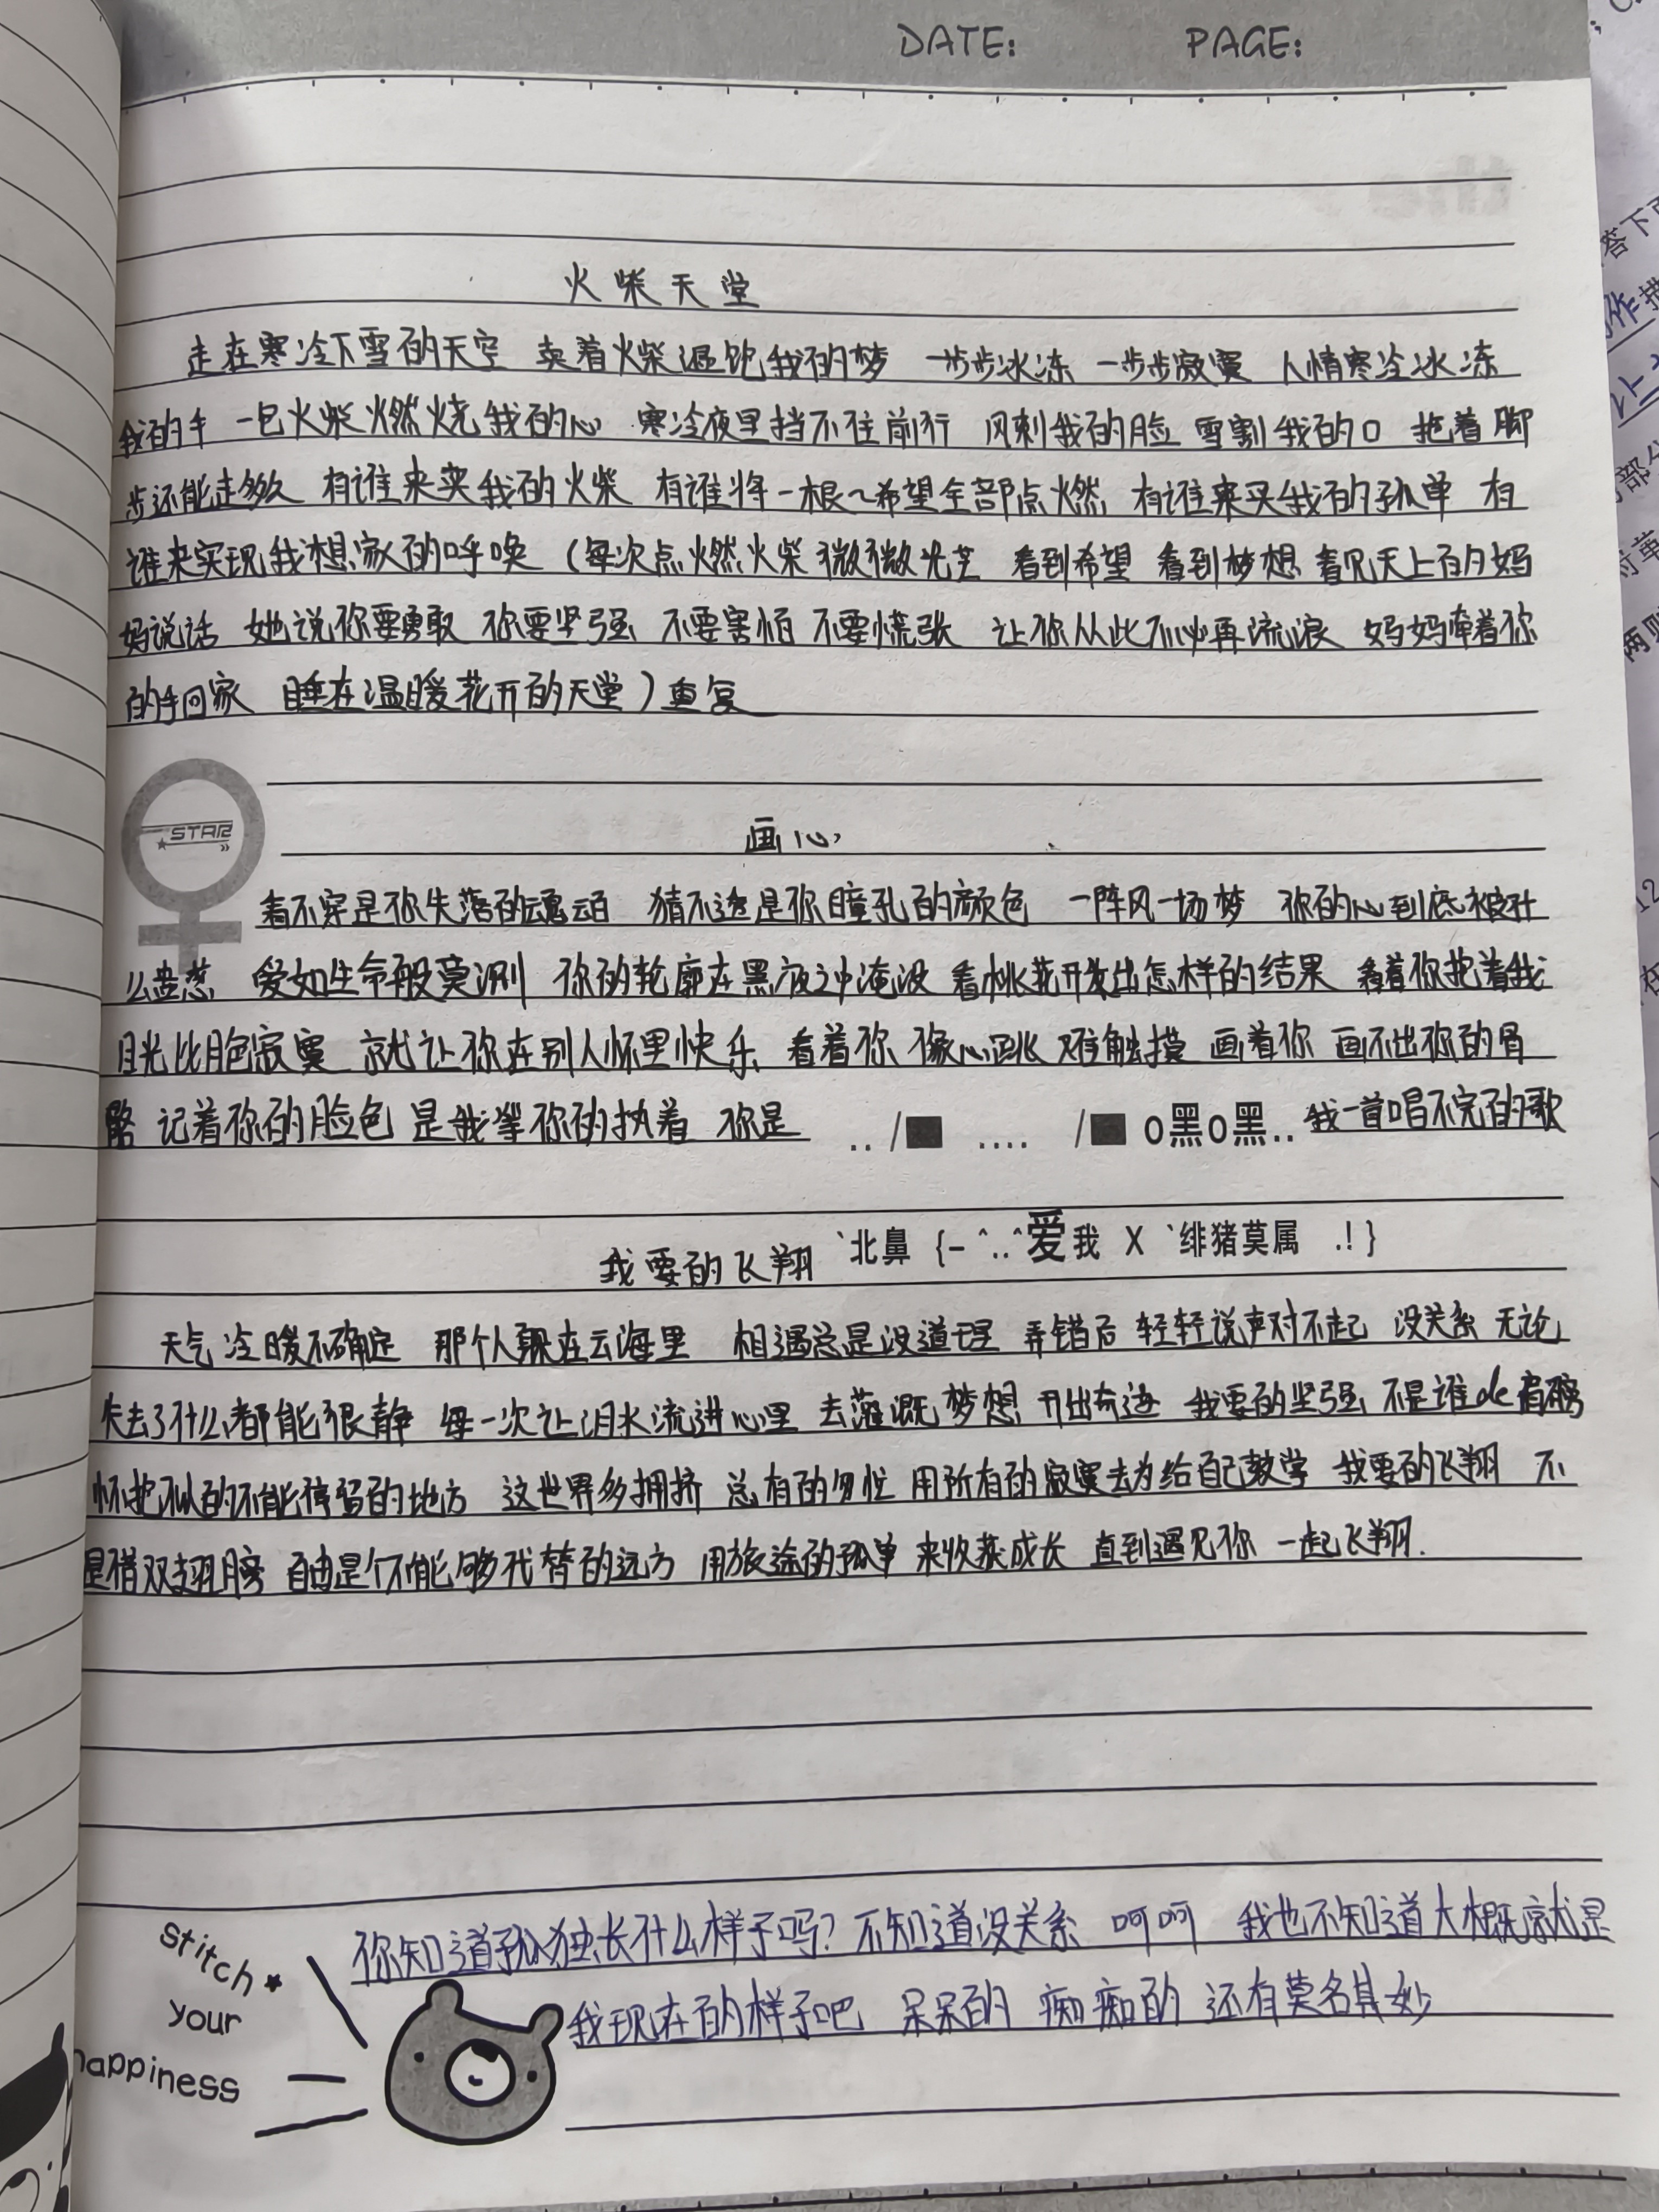 DATE: PAGE:
火柴天堂
走在寒冷下雪的天空 卖着火柴温饱我的梦 一步步冰冻 一步步寂寞 人情寒冷冰冻
我的手 一包火柴燃烧我的心 寒冷夜里挡不住前行 风刺我的脸 雪割我的口 拖着脚
步还能走多久 有谁来买我的火柴 有谁将一根~希望全部点燃 有谁来买我的孤单 有
谁来实现我想家的呼唤 (每次点燃火柴微微光芒 看到希望 看到梦想 看见天上的妈
妈说话 她说你要勇敢 你要坚强 不要害怕 不要慌张 让你从此不必再流浪 妈妈牵着你
的手回家 睡在温暖花开的天堂)重复
STAR
画心
看不穿是你失落的魂魄 猜不透是你瞳孔的颜色 一阵风一场梦 你的心到底被什
么蛊惑 爱如生命般莫测 你的轮廓在黑夜之中淹没 看桃花开出怎样的结果 看着你抱着我
目光比月色寂寞 就让你在别人怀里快乐 看着你 像心跳 难触摸 画着你 画不出你的骨
骼 记着你的脸色 是我等你的执着 你是 .. /■ .... /■ o黑o黑.. 我一首唱不完的歌
我要的飞翔 `北鼻 {- ^..^爱我 X `绯猪莫属 .! }
天气冷暖不确定 那个人躲在云海里 相遇总是没道理 弄错后 轻轻说声对不起 没关系 无论
失去了什么都能很静 每一次让泪水流进心里 去灌溉梦想 开出奇迹 我要的坚强 不是谁de肩膀
怀抱 的不能停留的地方 这世界多拥挤 总有的匆忙 用所有的寂寞去为给自己教学 我要的飞翔 不
是借双翅膀 自由是个不能够代替的远方 用旅途的孤单 来收获成长 直到遇见你 一起飞翔.
stitch
your
happiness
你知道孤独长什么样子吗? 不知道没关系 呵呵 我也不知道大概就是
我现在的样子吧 呆呆的 痴痴的 还有莫名其妙